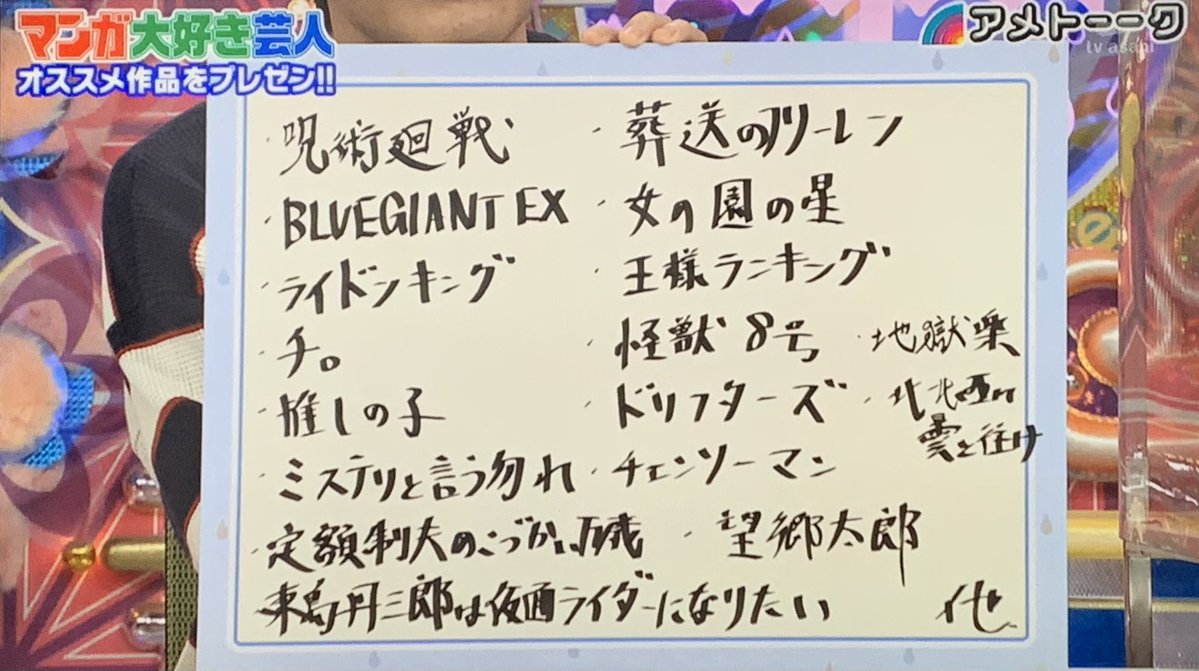 マンガ大好き芸人
オススメ作品をプレゼン!!
アメトーーク
tv asahi
・呪術廻戦
・葬送のフリーレン
・BLUEGIANT EX
・女の園の星
・ライドンキング
・王様ランキング
・チ。
・怪獣8号
・地獄楽
・推しの子
・ドリフターズ
・北北西
雲と往け
・ミステリと言う勿れ
・チェンソーマン
・定額制夫のこづかい万歳
・望郷太郎
東島丹三郎は仮面ライダーになりたい
他